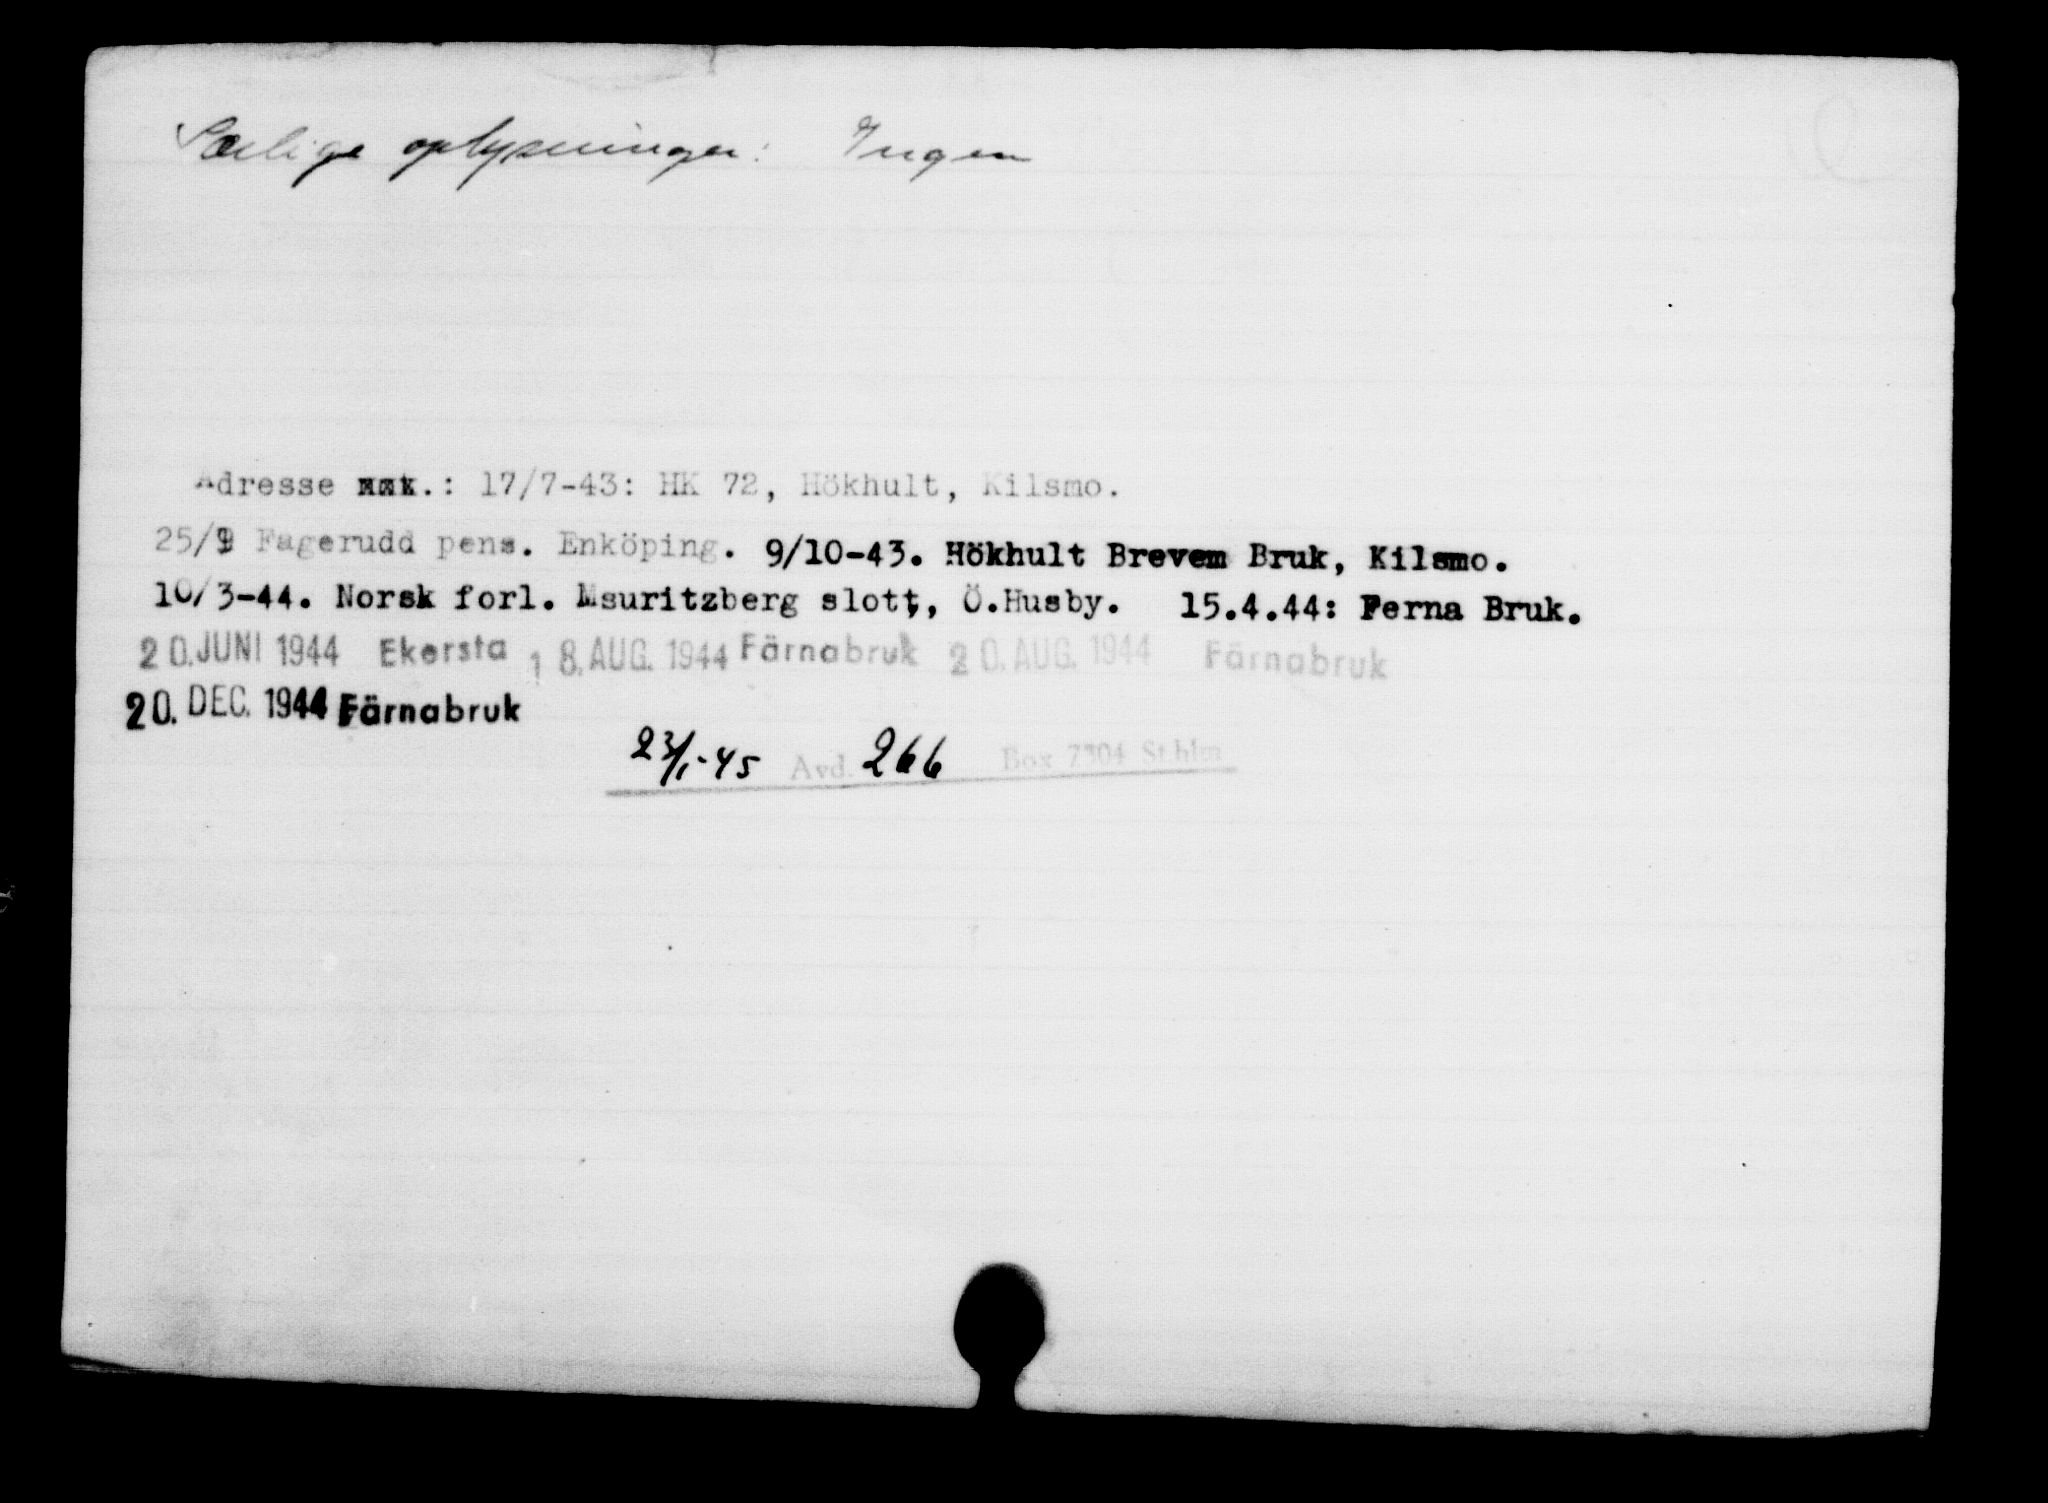 Særlige oplysninger: Ingen
Adresse xxx.: 17/7-43: HK 72, Hökhult, Kilsmo.
25/9 Fagerudd pens. Enköping. 9/10-43. Hökhult Brevem Bruk, Kilsmo.
10/3-44. Norsk forl. Msuritzberg slott, Ö.Husby. 15.4.44: Ferna Bruk.
20.JUNI 1944 Ekersta 18.AUG.1944 Färnabruk 20.AUG.1944 Färnabruk
20.DEC.1944 Färnabruk
23/1-45 Avd. 266 Box 7304 Sthlm